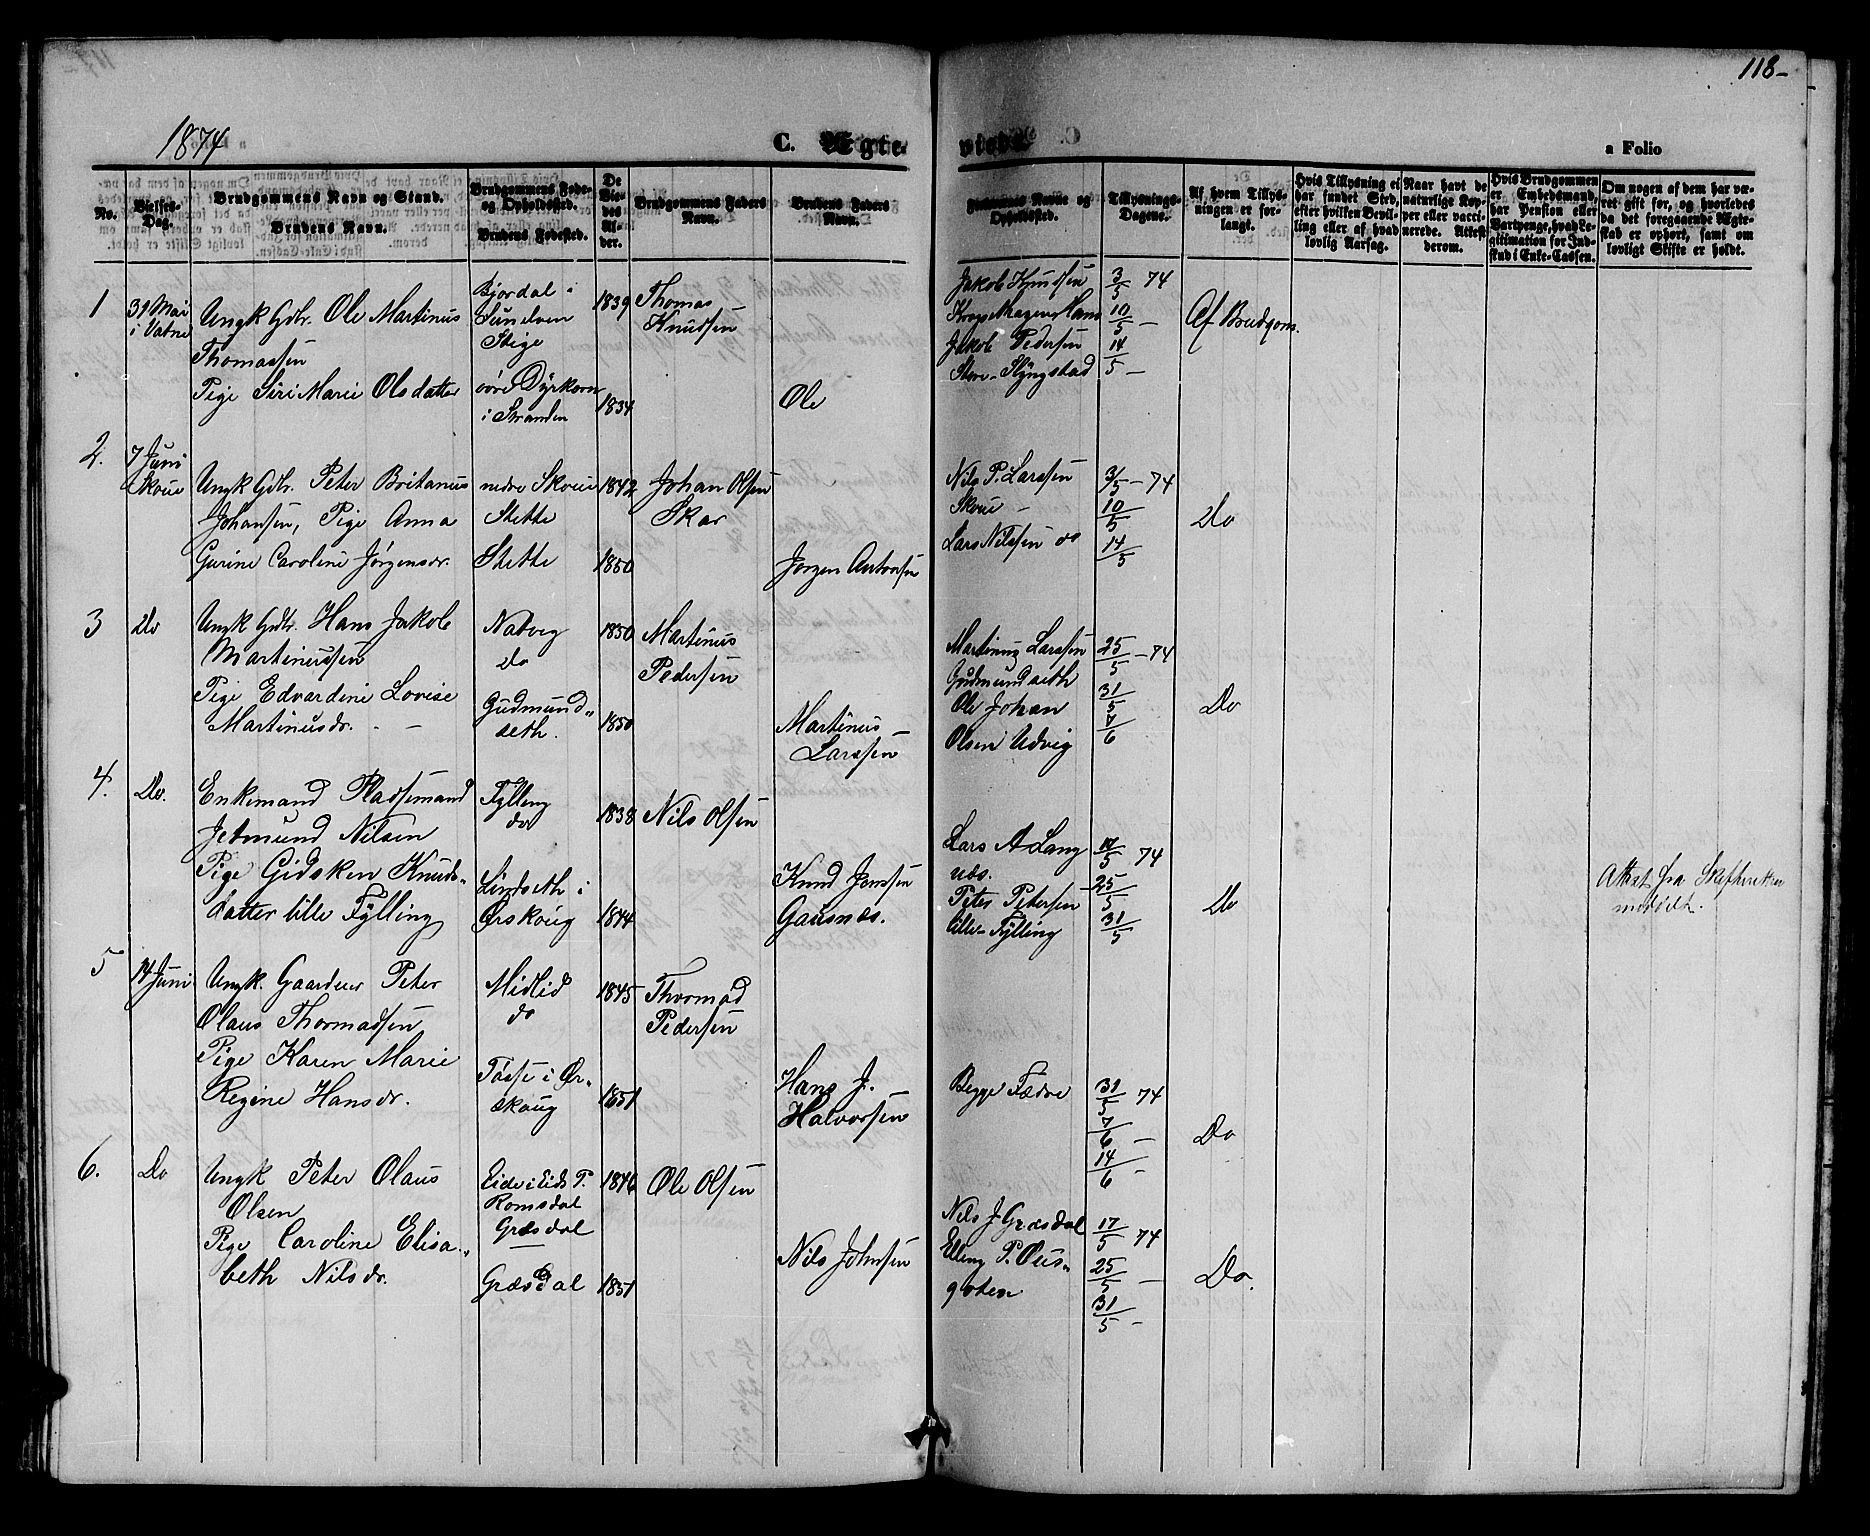 118-
1874
C. Ægte-
viede.
a Folio
No.
Vielses-Dag.
Brudgommens Navn og Stand.
Brudens Navn.
Brudgommens Føde- og Opholdssted.
Brudens Fødested.
De Viedes Alder.
Brudgommens Faders Navn.
Brudens Faders Navn.
Forlovernes Navne og Opholdssted.
Tillysnings-Dagene.
Af hvem Tillysningen er forlangt.
Hvis Tillysning ei har fundet Sted, efter hvilken Bevilling eller af hvad lovlig Aarsag.
Naar havt de naturlige Kopper eller vaccinerede. Attester derom.
Hvis Brudgommen er Embedsmand, har Pension eller Vartpenge, hvad Legitimation for Indskud i Enke-Cassen.
Om nogen af dem har været gift før, og hvorledes da det foregaaende Ægteskab er ophørt, samt om lovligt Skifte er holdt.
1
31 Mai
i Vatne
Ungk Gdbr. Ole Martinus
Thomassen
Pige Siri Marie Olsdatter
Bjordal i
Sunelven
Stige
øvre Dyrkorn
i Stranden
1839
1834
Thomas
Knudsen
Ole
Jakob Knudsen
Hans
Jakob Pedersen
Store-Slyngstad
3/5 74
10/5 -
14/5 -
Af Brudgom.
2.
7 Juni
Skoue
Ungk Gdbr. Peter Britanus
Johansen, Pige Anna
Gurine Caroline Jørgensdr.
nedre Skoue
Stette
Stette
1842
1850
Johan Olsen
Skar
Jørgen Antonsen
Nils P. Larssen
Skoue -
Lars Nilssen do
3/5 - 74
10/5
14/5
Do
3
Do
Ungk Gdbr. Hans Jakob
Martinussen
Pige Edvardine Lovise
Martinusdr. - -
Natvig
do
Gudmund-
seth.
1850
1850
Martinus
Pedersen
Martinus
Larssen
Martinus Larssen
Gudmundseth
Ole Johan
Olsen Udvig
25/5 - 74
31/5
7/6
Do
4.
Do.
Enkemand Pladsemand
Jetmund Nilsen
Pige Gidsken Knuds-
datter lille Fylling
Fylling
do
Lindseth i
Ørskoug
1838
1844
Nils Olsen
Knud Jonssen
Gausnæs.
Lars A Lang
næs.
Peter Petersen
lille-Fylling
14/5 74
25/5
31/5
Do
Attest fra Skifteretten
meddelt.
5
14 Juni
Ungk. Gaardbr Peter
Olaus Thormodsen
Pige Karen Marie
Regine Hansdr.
Midlid
do
Tøsse i Ør-
skoug
1845
1851
Thormod
Pedersen
Hans J.
Halvorsen
Begge Fædre
31/5 74
7/6 -
14/6 -
Do
6.
Do
Ungk Peter Olaus
Olsen
Pige Caroline Elisa-
beth Nilsdr.
Eide i Eids P.
Romsdal
Græsdal
Græsdal
1846
1851
Ole Olsen
Nils Johnsen
Nils J Græsdal
Elling P. Øus-
goten
17/5 74
25/5 -
31/5 -
Do.